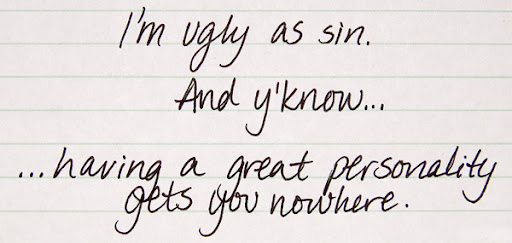 I'm ugly as sin.
And y'know...
...having a great personality
gets you nowhere.